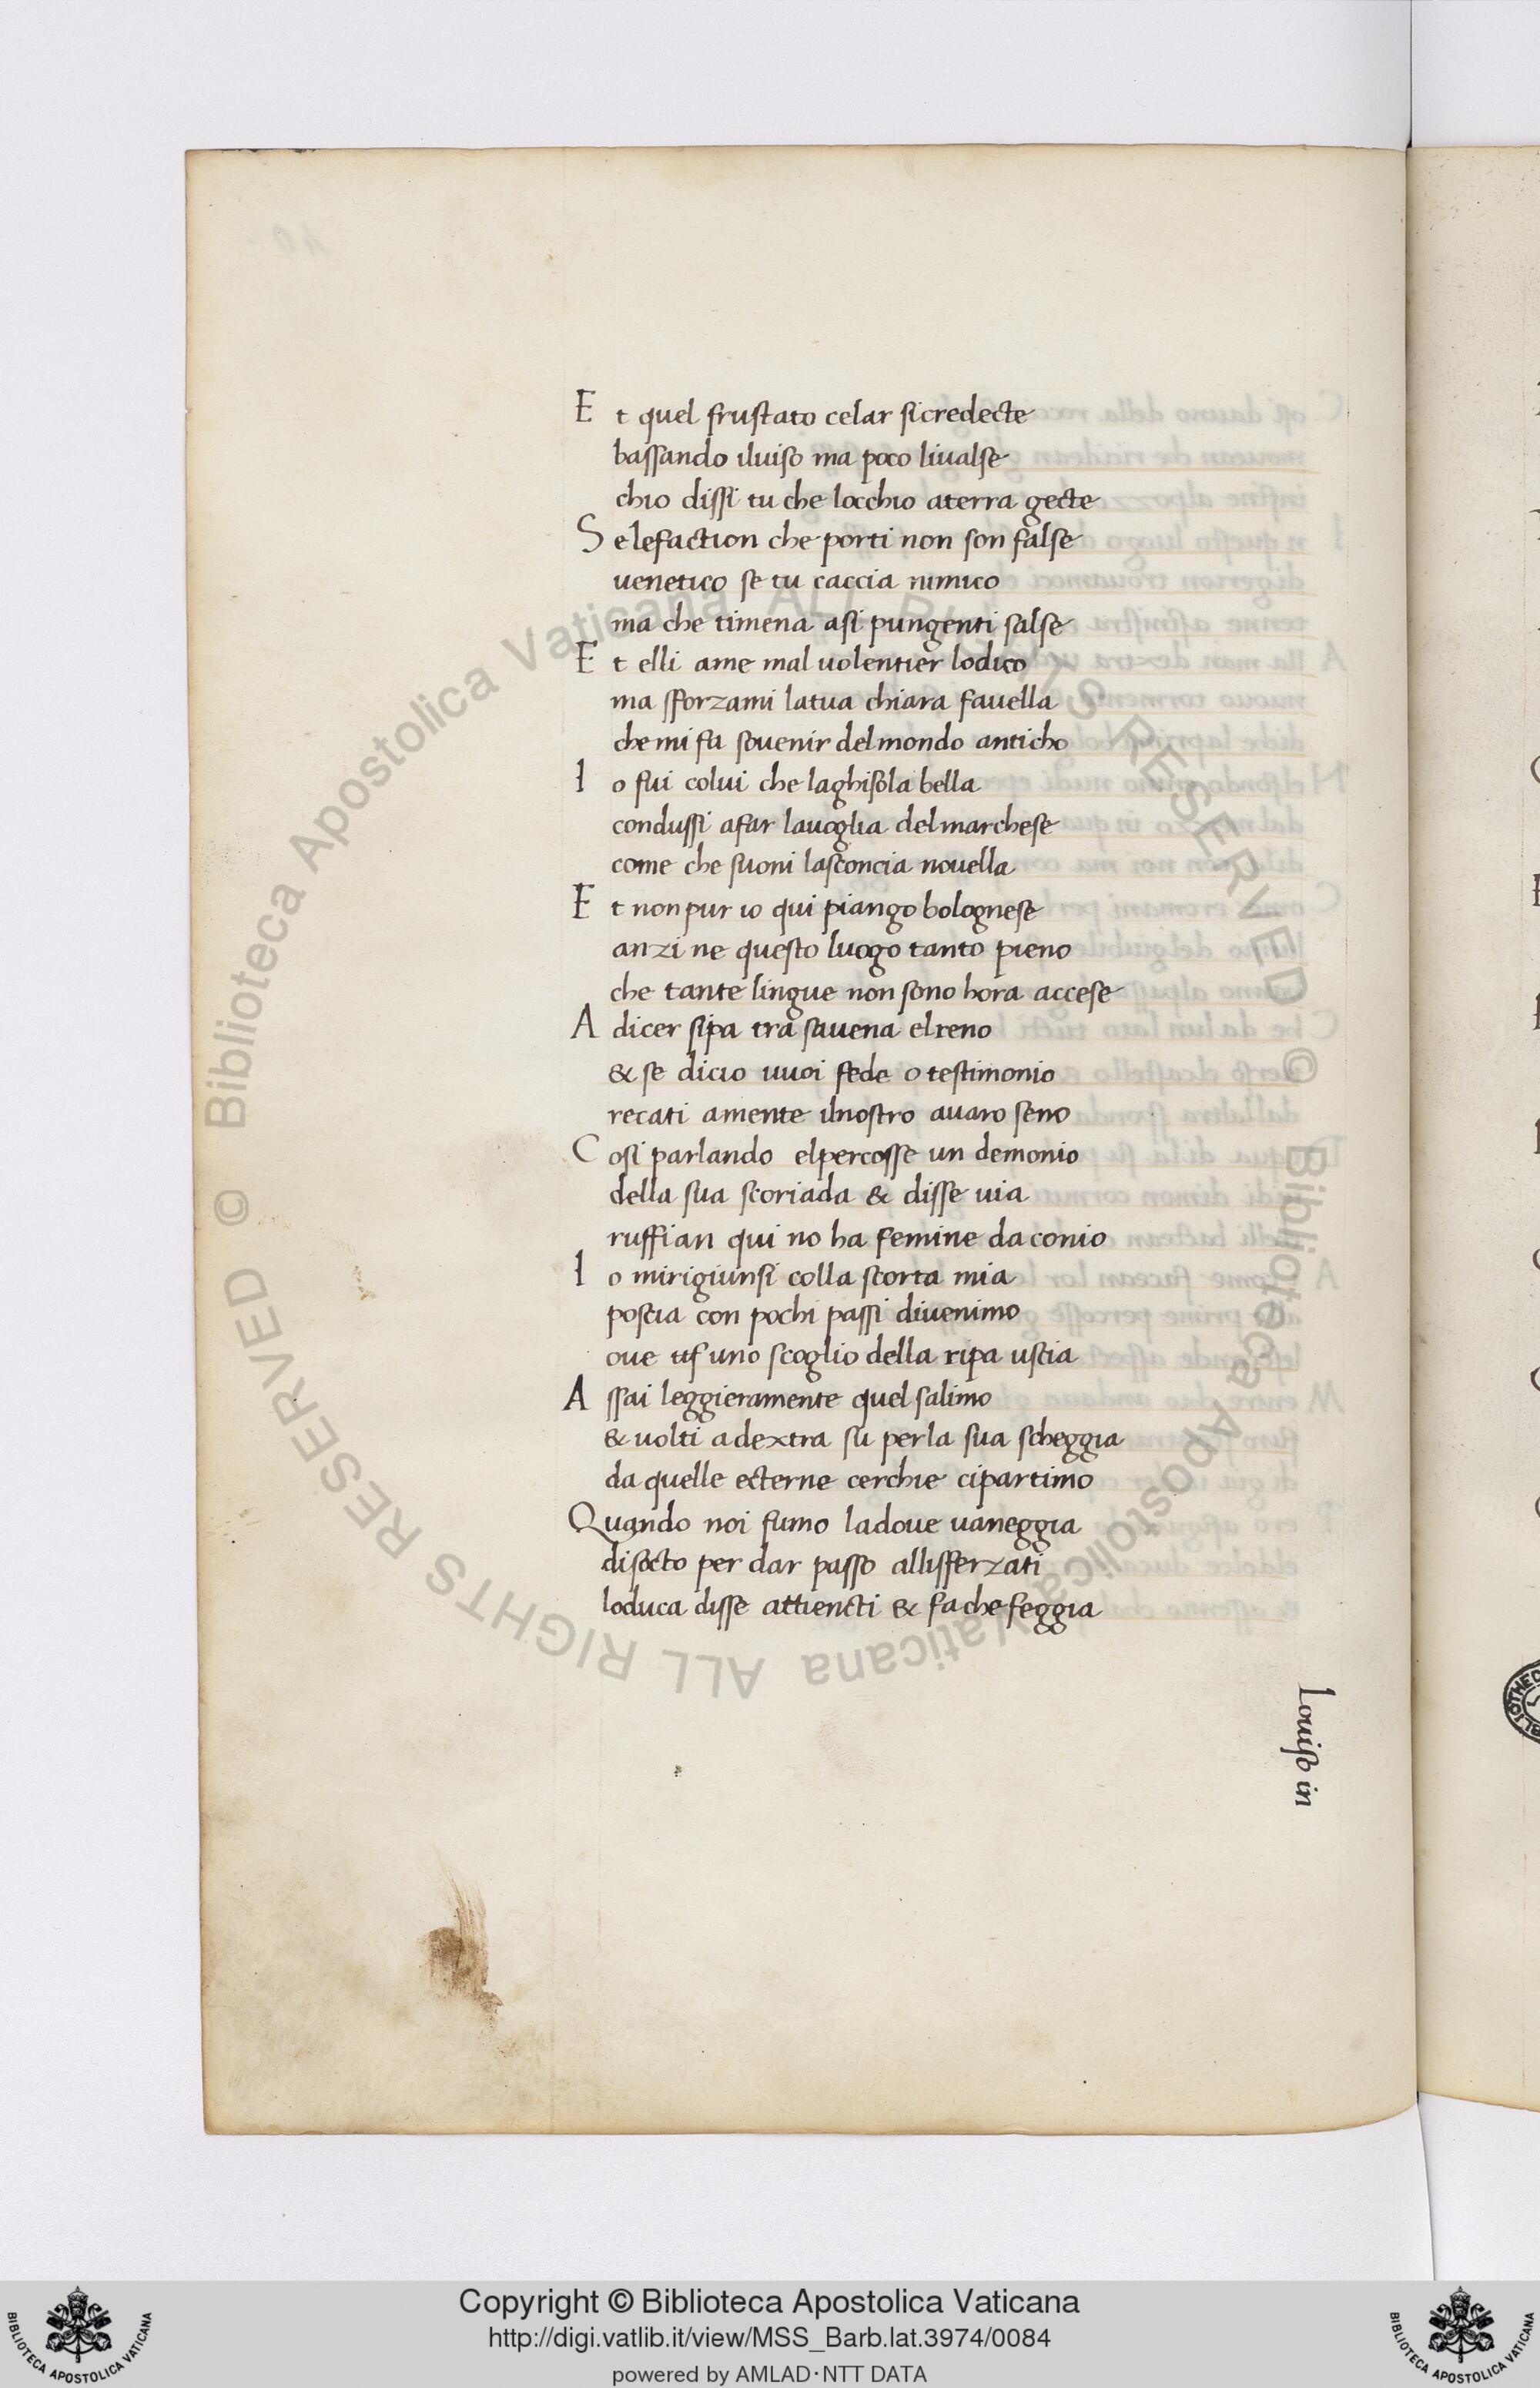 Et quel frustato celar sicredecte
bassando iluiso ma poco liualse
chio dissi tu che locchio aterra gecte
Se lefaction che porti non son false
uenetico se tu caccia nimico
ma che timena asi pungenti salse
Et elli ame mal uolentier lodico
ma sforzami latua chiara fauella
che mi fa souenir del mondo anticho
Io fui colui che laghisola bella
condussi afar lauoglia del marchese
come che suoni lasconcia nouella
Et non pur io qui piango bolognese
anzi ne questo luogo tanto pieno
che tante lingue non sono hora accese
A dicer sipa tra sauena elreno
& se dicio uuoi fede o testimonio
recati amente ilnostro auaro seno
Cosi parlando elpercosse un demonio
della sua scoriada & disse uia
ruffian qui no ha femine da conio
Io mirigiunsi colla scorta mia
poscia con pochi passi diuenimo
oue uno scoglio della ripa uscia
Assai leggieramente quel salimo
& uolti adextra su perla sua scheggia
da quelle ecterne cerchie cipartimo
Quando noi fumo ladoue uaneggia
disocto per dar passo allisferzati
loduca disse attiencti & fa che feggia
Louiso in
© Biblioteca Apostolica Vaticana ALL RIGHTS RESERVED © Biblioteca Apostolica Vaticana ALL RIGHTS RESERVED
BIBLIOTECA APOSTOLICA VATICANA
Copyright © Biblioteca Apostolica Vaticana
http://digi.vatlib.it/view/MSS_Barb.lat.3974/0084
powered by AMLAD·NTT DATA
BIBLIOTECA APOSTOLICA VATICANA